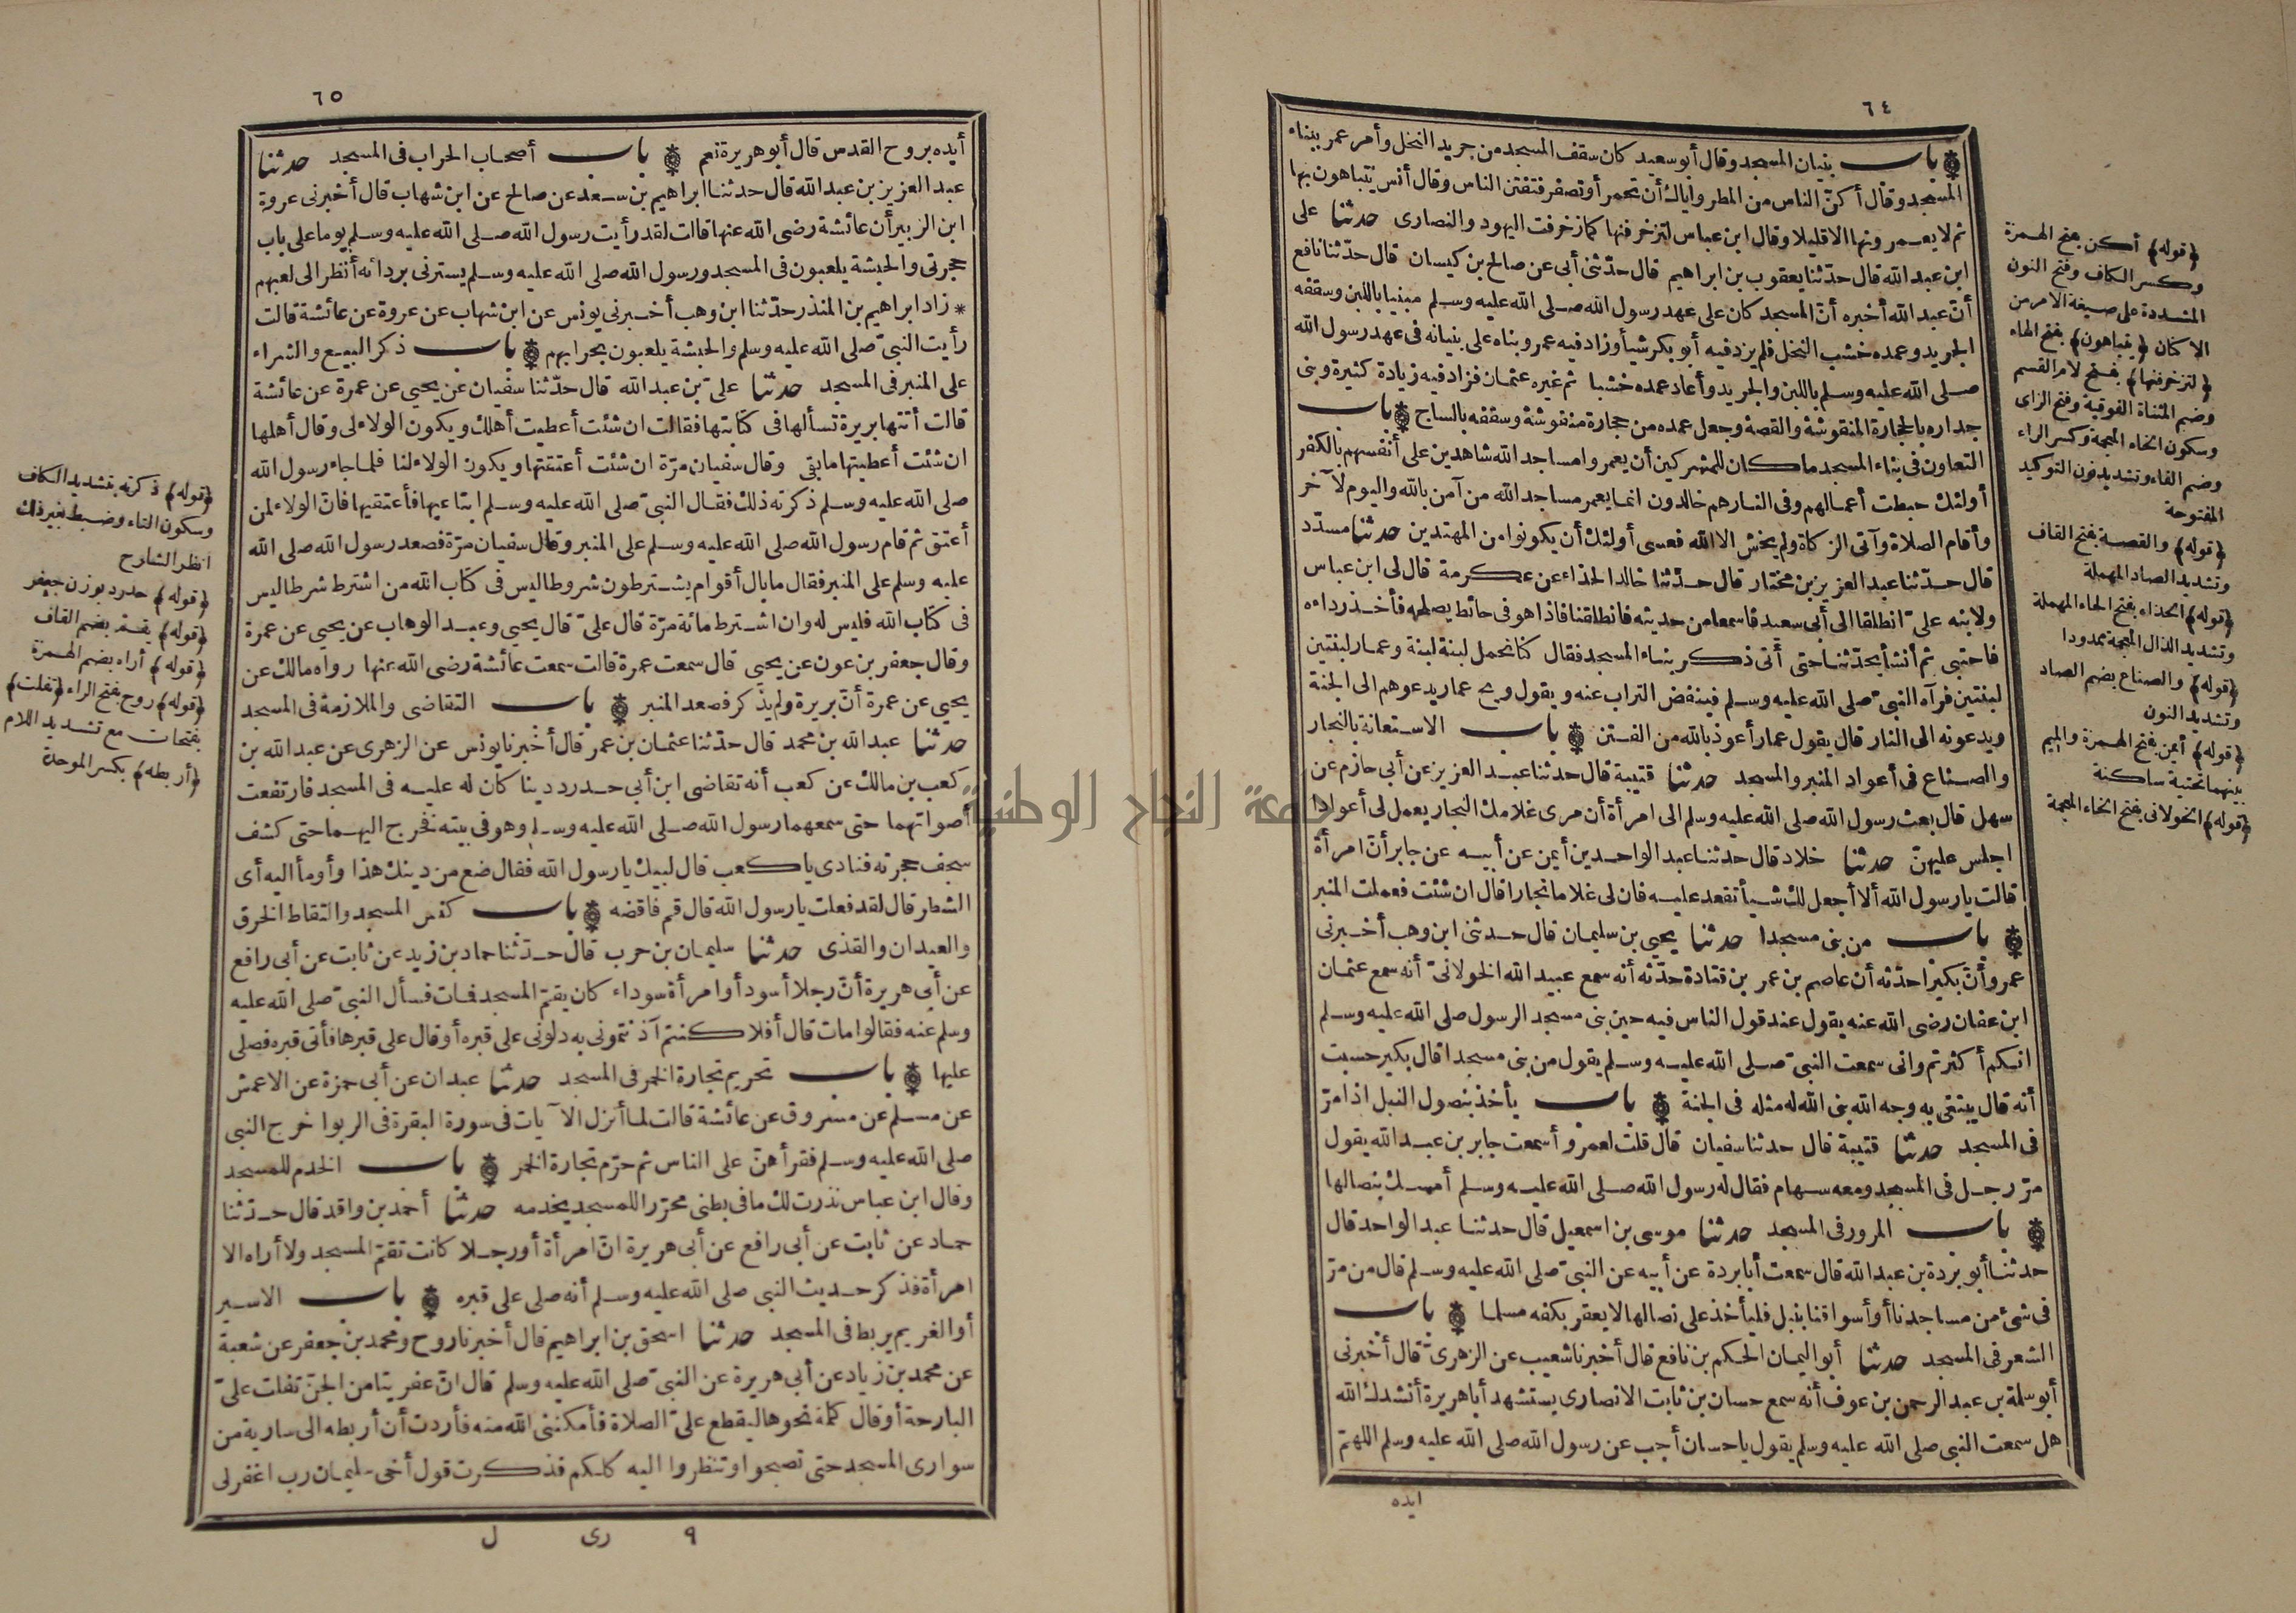 ٦٤
باب بنيان المسجد وقال أبو سعيد كان سقف المسجد من جريد النخل وأمر عمر ببناء
المسجد وقال أكنّ الناس من المطر واياك أن تحمر أو تصفر فتفتن الناس وقال أنس يتباهون بها
ثم لا يعمرونها الا قليلا وقال ابن عباس لتزخرفنها كما زخرفت اليهود والنصارى حدثنا على
ابن عبد الله قال حدّثنا يعقوب بن ابراهيم قال حدّثنى أبى عن صالح بن كيسان قال حدّثنا نافع
أنّ عبد الله أخبره أنّ المسجد كان على عهد رسول الله صلى الله عليه وسلم مبنيا باللبن وسقفه
الجريد وعمده خشب النخل فلم يزد فيه أبو بكر شيأ وزاد فيه عمر وبناه على بنيانه فى عهد رسول الله
صلى الله عليه وسلم باللبن والجريد وأعاد عمده خشبا ثم غيره عثمان فزاد فيه زيادة كثيرة وبنى
جداره بالحجارة المنقوشة والقصة وجعل عمده من حجارة منقوشة وسقفه بالساج باب
التعاون فى بناء المسجد ما كان للمشركين أن يعمروا مساجد الله شاهدين على أنفسهم بالكفر
أولئك حبطت أعمالهم وفى النار هم خالدون انما يعمر مساجد الله من آمن بالله واليوم الآخر
وأقام الصلاة وآتى الزكاة ولم يخش الا الله فعسى أولئك أن يكونوا من المهتدين حدثنا مسدّد
قال حدّثنا عبد العزيز بن مختار قال حدّثنا خالد الحذاء عن عكرمة قال لى ابن عباس
ولابنه علىّ انطلقا الى أبى سعيد فاسمعا من حديثه فانطلقنا فاذا هو فى حائط يصلحه فأخذ رداءه
فاحتبى ثم أنشأ يحدّثنا حتى أتى ذكر بناء المسجد فقال كنا نحمل لبنة لبنة وعمار لبنتين
لبنتين فرآه النبىّ صلى الله عليه وسلم فينفض التراب عنه ويقول ويح عمار يدعوهم الى الجنة
ويدعونه الى النار قال يقول عمار أعوذ بالله من الفتن باب الاستعانة بالنجار
والصناع فى أعواد المنبر والمسجد حدثنا قتيبة قال حدثنا عبد العزيز عن أبى حازم عن
سهل قال بعث رسول الله صلى الله عليه وسلم الى امرأة أن مرى غلامك النجار يعمل لى أعوادا
اجلس عليهنّ حدثنا خلاد قال حدثنا عبد الواحد بن أيمن عن أبيه عن جابر أنّ امرأة
قالت يا رسول الله ألا أجعل لك شيأ تقعد عليه فان لى غلاما نجارا قال ان شئت فعملت المنبر
باب من بنى مسجدا حدثنا يحيى بن سليمان قال حدثنى ابن وهب أخبرنى
عمرو أنّ بكيرا حدّثه أن عاصم بن عمر بن قتادة حدّثه أنه سمع عبيد الله الخولانىّ أنه سمع عثمان
ابن عفان رضى الله عنه يقول عند قول الناس فيه حين بنى مسجد الرسول صلى الله عليه وسلم
انكم أكثرتم وانى سمعت النبىّ صلى الله عليه وسلم يقول من بنى مسجدا قال بكير حسبت
أنه قال يبتغى به وجه الله بنى الله له مثله فى الجنة باب يأخذ بنصول النبل اذا مرّ
فى المسجد حدثنا قتيبة قال حدثنا سفيان قال قلت لعمرو أسمعت جابر بن عبد الله يقول
مرّ رجل فى المسجد ومعه سهام فقال له رسول الله صلى الله عليه وسلم أمسك بنصالها
باب المرور فى المسجد حدثنا موسى بن اسمعيل قال حدثنا عبد الواحد قال
حدثنا أبو بردة بن عبد الله قال سمعت أبا بردة عن أبيه عن النبىّ صلى الله عليه وسلم قال من مرّ
فى شئ من مساجدنا أو أسواقنا بنبل فليأخذ على نصالها لا يعقر بكفه مسلما باب
الشعر فى المسجد حدثنا أبو اليمان الحكم بن نافع قال أخبرنا شعيب عن الزهرىّ قال أخبرنى
أبو سلمة بن عبد الرحمن بن عوف أنه سمع حسان بن ثابت الانصارى يستشهد أبا هريرة أنشدك الله
هل سمعت النبى صلى الله عليه وسلم يقول يا حسان أجب عن رسول الله صلى الله عليه وسلم اللهمّ
ايده
﴿قوله﴾ أكن بفتح الهمزة
وكسر الكاف وفتح النون
المشددة على صيغة الامر من
الاكنان ﴿يتباهون﴾ بفتح الهاء
﴿لتزخرفنها﴾ بفتح لام القسم
وضم المثناة الفوقية وفتح الزاى
وسكون الخاء المعجمة وكسر الراء
وضم الفاء وتشديد نون التوكيد
المفتوحة
﴿قوله﴾ والقصة بفتح القاف
وتشديد الصاد المهملة
﴿قوله﴾ الحذاء بفتح الحاء المهملة
وتشديد الذال المعجمة ممدودا
﴿قوله﴾ والصناع بضم الصاد
وتشديد النون
﴿قوله﴾ أيمن بفتح الهمزة والميم
بينهما تحتية ساكنة
﴿قوله﴾ الخولانى بفتح الخاء المعجمة
جامعة النجاح الوطنية
٦٥
أيده بروح القدس قال أبو هريرة نعم باب أصحاب الحراب فى المسجد حدثنا
عبد العزيز بن عبد الله قال حدثنا ابراهيم بن سعد عن صالح عن ابن شهاب قال أخبرنى عروة
ابن الزبير أن عائشة رضى الله عنها قالت لقد رأيت رسول الله صلى الله عليه وسلم يوما على باب
حجرتى والحبشة يلعبون فى المسجد ورسول الله صلى الله عليه وسلم يسترنى بردائه أنظر الى لعبهم
* زاد ابراهيم بن المنذر حدّثنا ابن وهب أخبرنى يونس عن ابن شهاب عن عروة عن عائشة قالت
رأيت النبىّ صلى الله عليه وسلم والحبشة يلعبون بحرابهم باب ذكر البيع والشراء
على المنبر فى المسجد حدثنا علىّ بن عبد الله قال حدّثنا سفيان عن يحيى عن عمرة عن عائشة
قالت أتتها بريرة تسألها فى كتابتها فقالت ان شئت أعطيت أهلك ويكون الولاء لى وقال أهلها
ان شئت أعطيتها ما بقى وقال سفيان مرّة ان شئت أعتقتها ويكون الولاء لنا فلما جاء رسول الله
صلى الله عليه وسلم ذكرته ذلك فقال النبىّ صلى الله عليه وسلم ابتاعيها فأعتقيها فانّ الولاء لمن
أعتق ثم قام رسول الله صلى الله عليه وسلم على المنبر وقال سفيان مرّة فصعد رسول الله صلى الله
عليه وسلم على المنبر فقال ما بال أقوام يشترطون شروطا ليس فى كتاب الله من اشترط شرطا ليس
فى كتاب الله فليس له وان اشترط مائة مرّة قال علىّ قال يحيى وعبد الوهاب عن يحيى عن عمرة
وقال جعفر بن عون عن يحيى قال سمعت عمرة قالت سمعت عائشة رضى الله عنها رواه مالك عن
يحيى عن عمرة أنّ بريرة ولم يذكر فصعد المنبر باب التقاضى والملازمة فى المسجد
حدثنا عبد الله بن محمد قال حدّثنا عثمان بن عمر قال أخبرنا يونس عن الزهرى عن عبد الله بن
كعب بن مالك عن كعب أنه تقاضى ابن أبى حدرد دينا كان له عليه فى المسجد فارتفعت
أصواتهما حتى سمعهما رسول الله صلى الله عليه وسلم وهو فى بيته فخرج اليهما حتى كشف
سجف حجرته فنادى يا كعب قال لبيك يا رسول الله فقال ضع من دينك هذا وأومأ اليه أى
الشطر قال لقد فعلت يا رسول الله قال قم فاقضه باب كنس المسجد والتقاط الخرق
والعيدان والقذى حدثنا سليمان بن حرب قال حدّثنا حماد بن زيد عن ثابت عن أبى رافع
عن أبى هريرة أنّ رجلا أسود أو امرأة سوداء كان يقمّ المسجد فمات فسأل النبىّ صلى الله عليه
وسلم عنه فقالوا مات قال أفلا كنتم آذنتمونى به دلونى على قبره أو قال على قبرها فأتى قبره فصلى
عليها باب تحريم تجارة الخمر فى المسجد حدثنا عبدان عن أبى حمزة عن الاعمش
عن مسلم عن مسروق عن عائشة قالت لما أنزل الآيات فى سورة البقرة فى الربوا خرج النبى
صلى الله عليه وسلم فقرأهنّ على الناس ثم حرّم تجارة الخمر باب الخدم للمسجد
وقال ابن عباس نذرت لك ما فى بطنى محرّرا للمسجد يخدمه حدثنا أحمد بن واقد قال حدّثنا
حماد عن ثابت عن أبى رافع عن أبى هريرة انّ امرأة أو رجلا كانت تقمّ المسجد ولا أراه الا
امرأة فذكر حديث النبى صلى الله عليه وسلم أنه صلى على قبره باب الاسير
أو الغريم يربط فى المسجد حدثنا اسحق بن ابراهيم قال أخبرنا روح ومحمد بن جعفر عن شعبة
عن محمد بن زياد عن أبى هريرة عن النبىّ صلى الله عليه وسلم قال انّ عفريتا من الجنّ تفلت علىّ
البارحة أو قال كلمة نحوها ليقطع علىّ الصلاة فأمكننى الله منه فأردت أن أربطه الى سارية من
سوارى المسجد حتى تصبحوا وتنظروا اليه كلكم فذكرت قول أخى سليمان رب اغفر لى
٩ رى ل
﴿قوله﴾ ذكرته بتشديد الكاف
وسكون التاء وضبط بغير ذلك
انظر الشارح
﴿قوله﴾ حدرد بوزن جعفر
﴿قوله﴾ يقم بضم القاف
﴿قوله﴾ أراه بضم الهمزة
﴿قوله﴾ روح بفتح الراء ﴿تفلت﴾
بفتحات مع تشديد اللام
﴿أربطه﴾ بكسر الموحدة